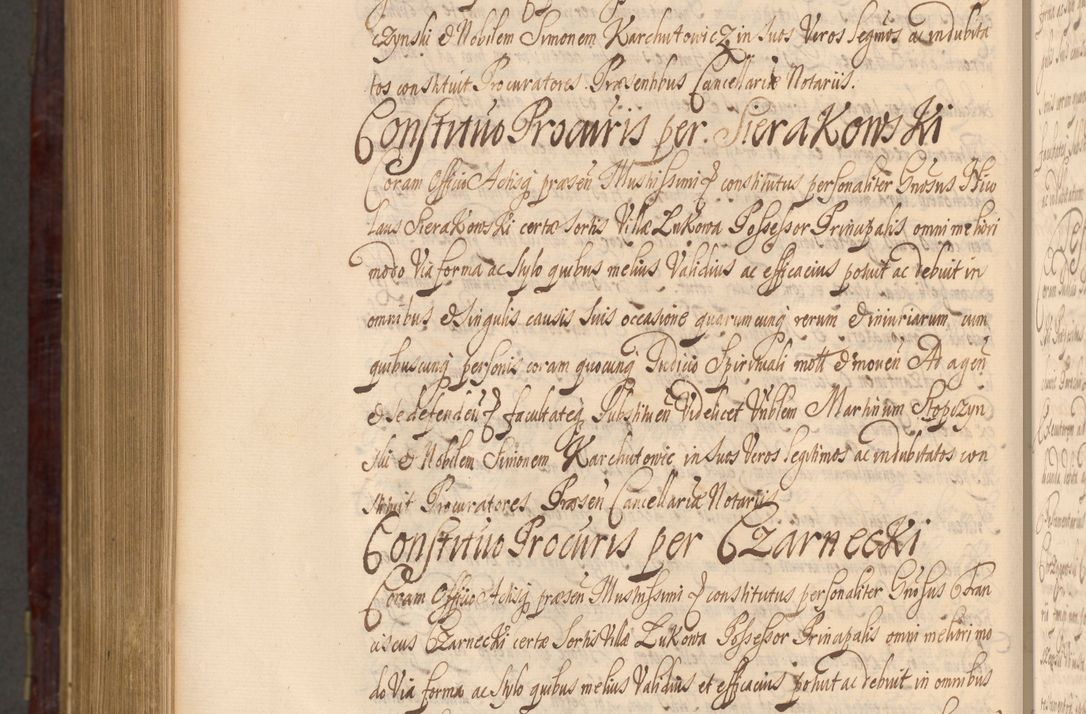 czynski & Nobilem Simonem Karchutowicz in suos Veros legmos ac indubita
tos constituit Procuratores Præsentibus Cancellariæ Notariis.
Constituo Procuris per Sierakowski
Coram Officio Actisq præsen Illustrissimi & constitutus personaliter Gnosus Nico
laus Sierakowski certæ sortis Villæ Lukowa Possessor Principalis omni meliori
modo Via forma ac stylo quibus melius Validius ac efficacius potuit ac debuit in
omnibus & singulis causis suis occasione quarumcunq rerum & iniuriarum cum
quibuscunq personis coram quocunq Judicio Spirituali mott & mouen Ad agen
& se defenden & facultateq Substituen Videlicet Vnblem Martinum Stopczyn
ski & Nobilem Simonem Karchutowic in suos Veros legitimos ac indubitatos con
stituit Procuratores Præsen Cancellariæ Notariis
Constituo Procuris per Czarnecki
Coram Officio Actisq præsen Illustrissimi & constitutus personaliter Gnosus Fran
ciscus Czarnecki certæ sortis Villæ Lukowa Possessor Principalis omni meliori mo
do Via forma ac stylo quibus melius Validius et efficacius potuit ac debuit in omnibus